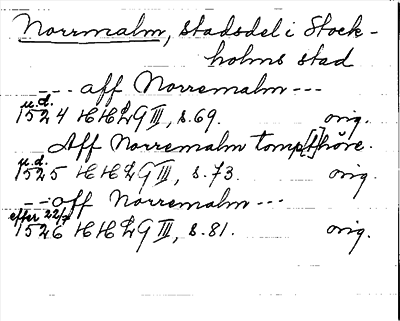 Norrmalm, stadsdel i Stock-
holms stad
--- aff Norremalm ---
u.d.
1524 HHLG III, s. 69. orig.
Aff Norremalm tomp[t]høre.
u.d.
1525 HHLG III, s. 73. orig.
--- aff Norremalm ---
efter 22/7
1526 HHLG III, s. 81. orig.